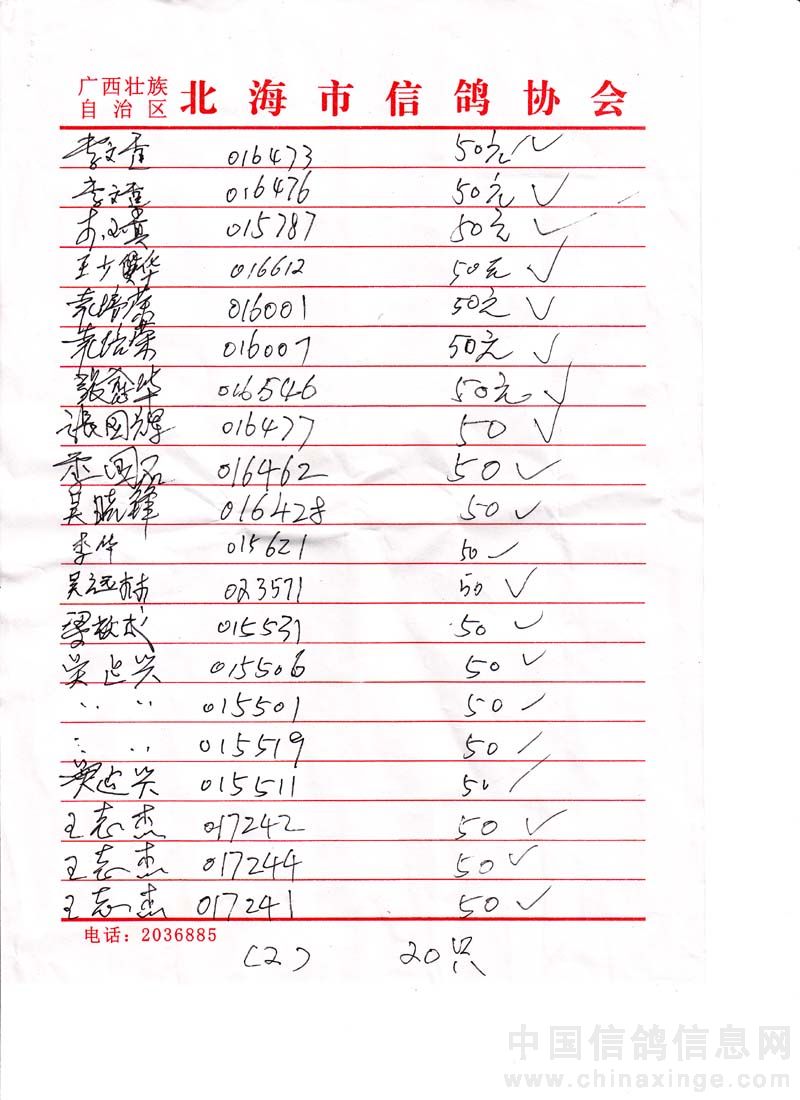 广西壮族
自治区 北海市信鸽协会
李文 016473 50元 ✓
李文 016476 50元 ✓
015787 50元 ✓
王少华 016612 50元 ✓
袁培荣 016001 50元 ✓
袁培荣 016007 50元 ✓
张 华 016546 50元 ✓
张国辉 016477 50 ✓
国 016462 50 ✓
吴晓锋 016428 50 ✓
李华 015621 50 ✓
吴远林 023571 50 ✓
梁 015531 50 ✓
吴延兴 015506 50 ✓
〃 〃 015501 50 ✓
〃 〃 015519 50 ✓
吴延兴 015511 50 ✓
王志杰 017242 50 ✓
王志杰 017244 50 ✓
王志杰 017241 50 ✓
电话: 2036885
(2) 20只
中国信鸽信息网
www.chinaxinge.com